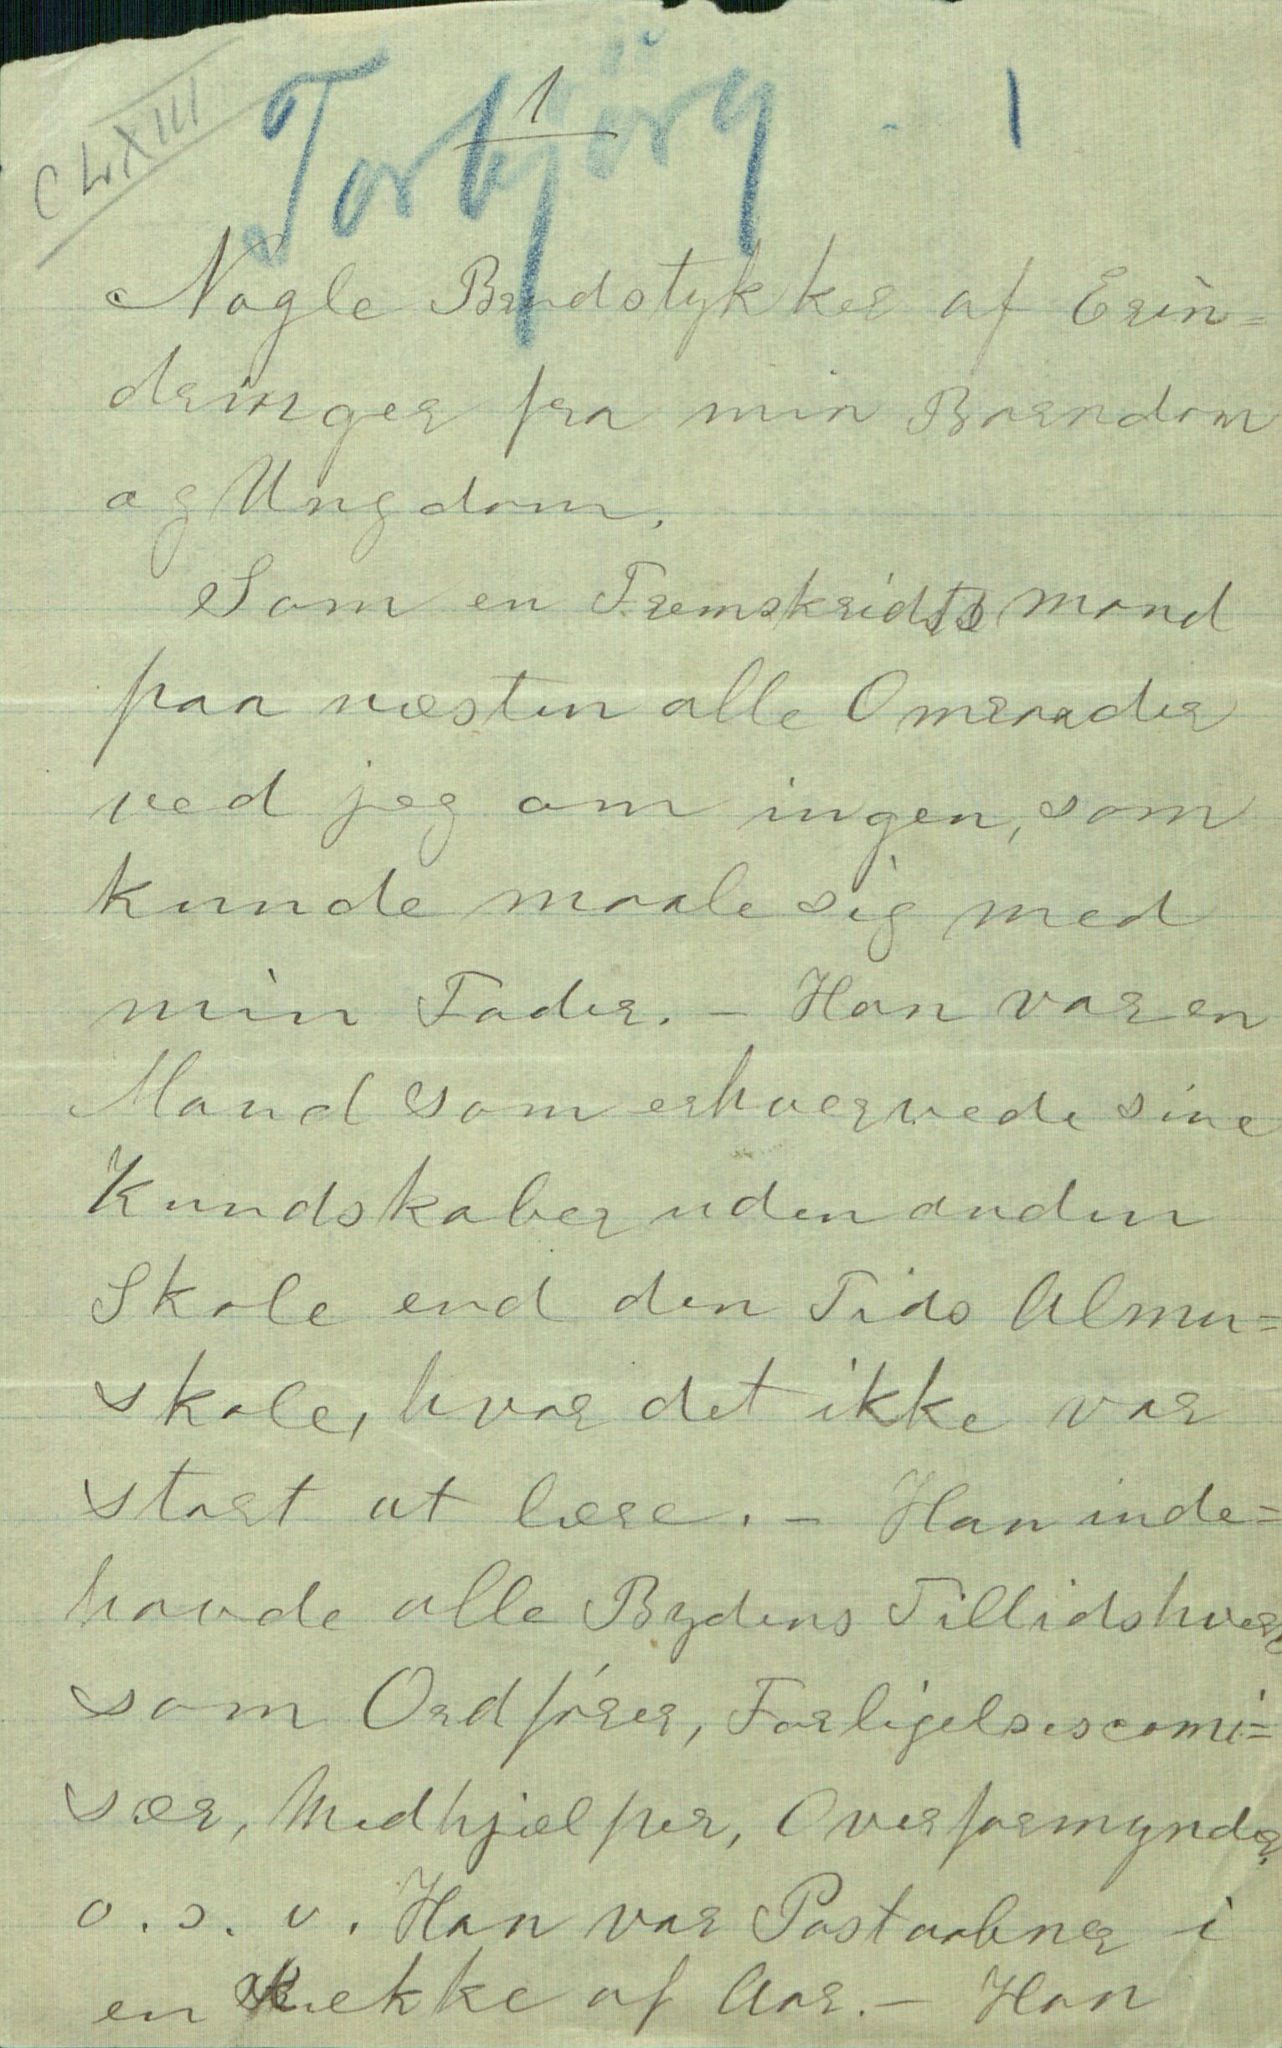 CLXIII
Torbjörg
1
1
Nogle Brudstykker af Erin=
dringer fra min Barndom
og Ungdom.
Som en Fremskridts mand
paa næsten alle Omraader
ved jeg om ingen, som
kunde maale sig med
min Fader. - Han var en
Mand som erhvervede sine
Kundskaber uden anden
Skole end den Tids Almu=
skole, hvor det ikke var
stort at lære. - Han inde=
havde alle Bydens Tillidshverv
som Ordförer, Forligelsescomi=
sær, Medhjælper, Overformynder
o. s. v. Han var Postaabner i
en Række af Aar. - Han